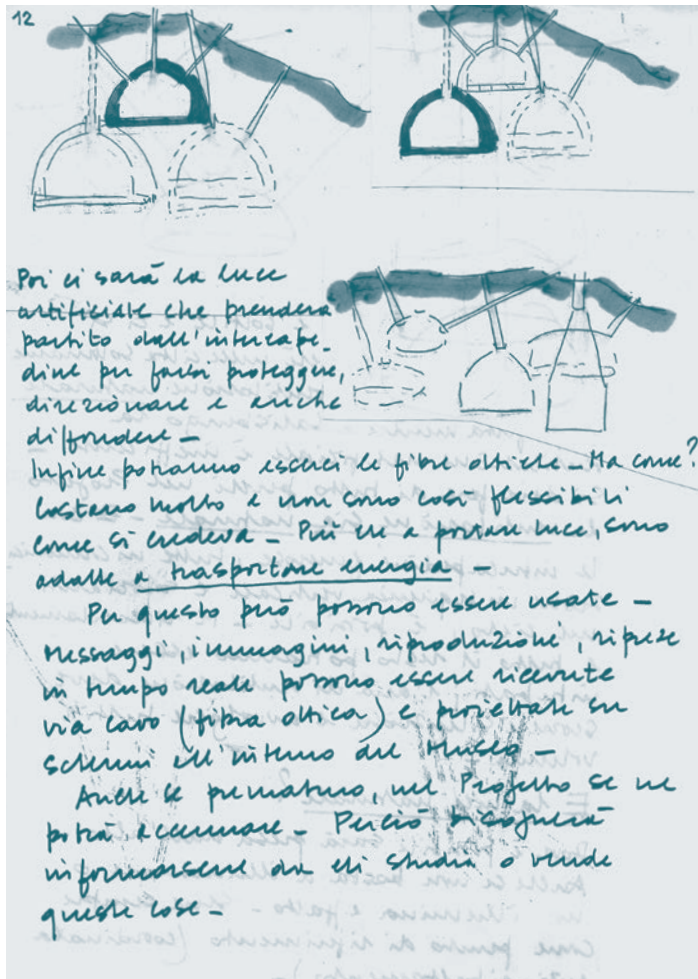 12
Poi ci sarà la luce
artificiale che prenderà
partito dall'intercape-
dine per farsi proteggere,
direzionare e anche
diffondere –
Infine potranno esserci le fibre ottiche – Ma come?
Costano molto e non sono così flessibili
come si credeva – Più che a portare luce, sono
adatte a trasportare energia –
Per questo però possono essere usate –
Messaggi, immagini, riproduzioni, riprese
in tempo reale possono essere ricevute
via cavo (fibra ottica) e proiettate su
schermi all'interno del Museo –
Anche se prematuro, nel Progetto se ne
potrà accennare – Perciò bisognerà
informarsene da chi studia o vende
queste cose –